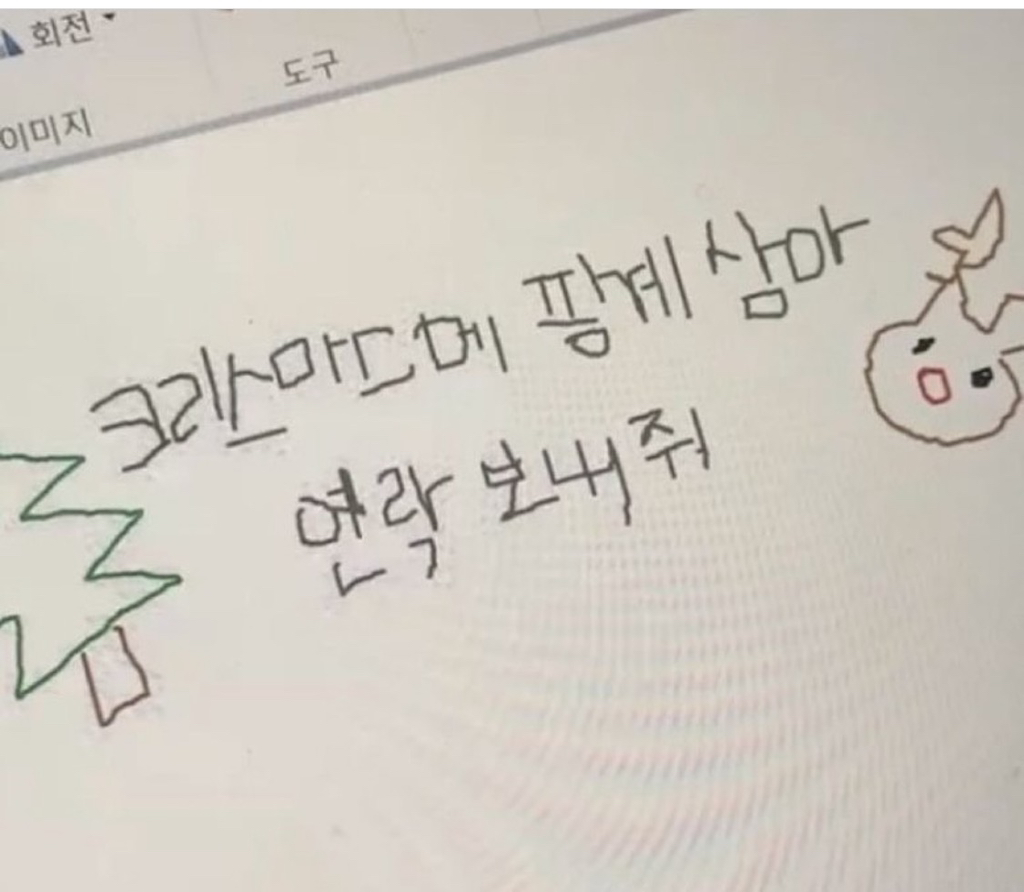 회전
도구
이미지
크리스마스에 핑계 삼아
연락 보내줘